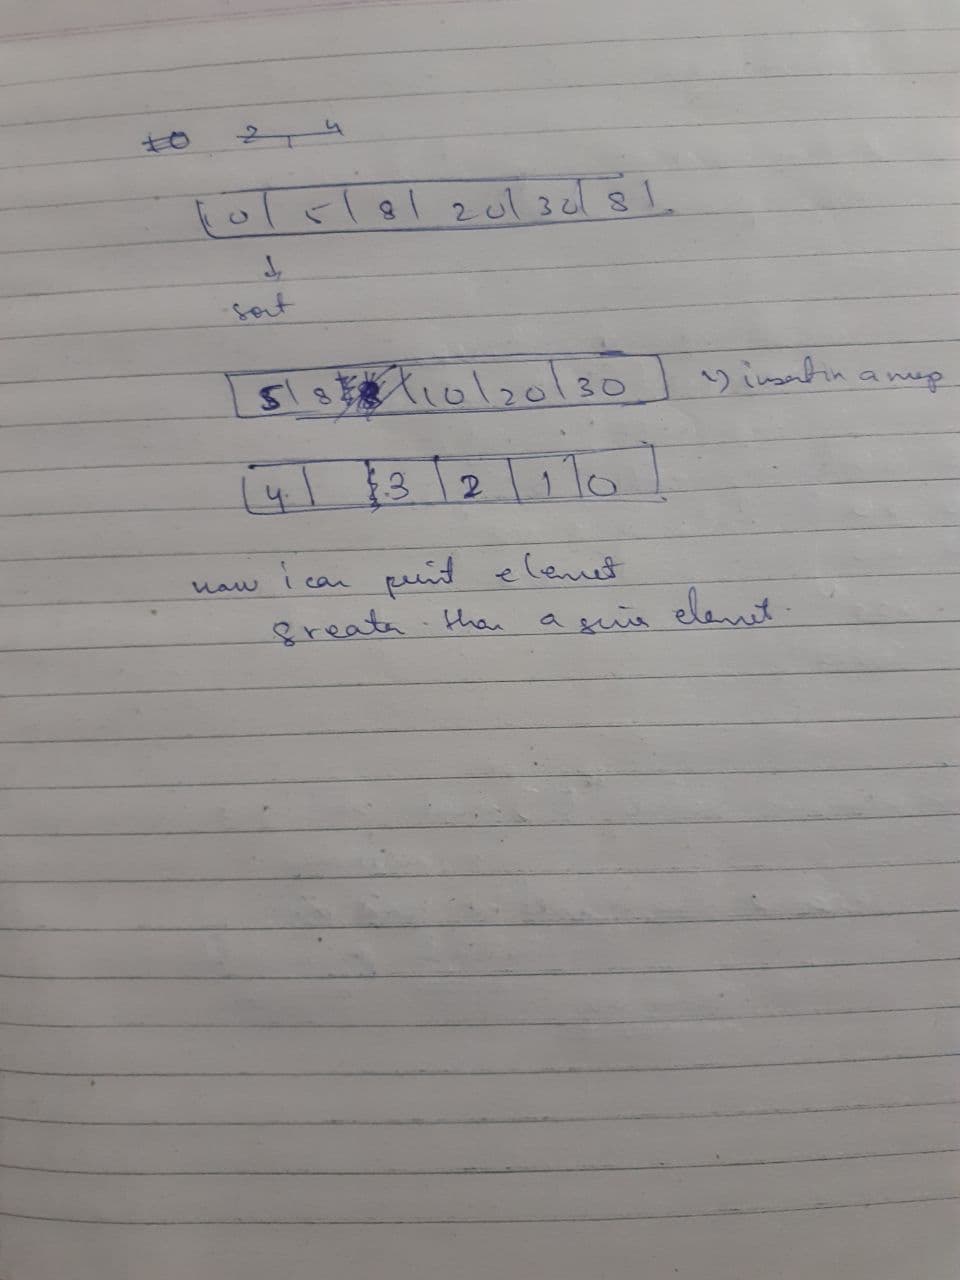 10 2 4
10 | 5 | 8 | 20 | 30 | 8 |
↓
sort
5 | 8 | 10 | 20 | 30 insert in a map
4 | 3 | 2 | 1 | 0
now i can print element
greater than a element.